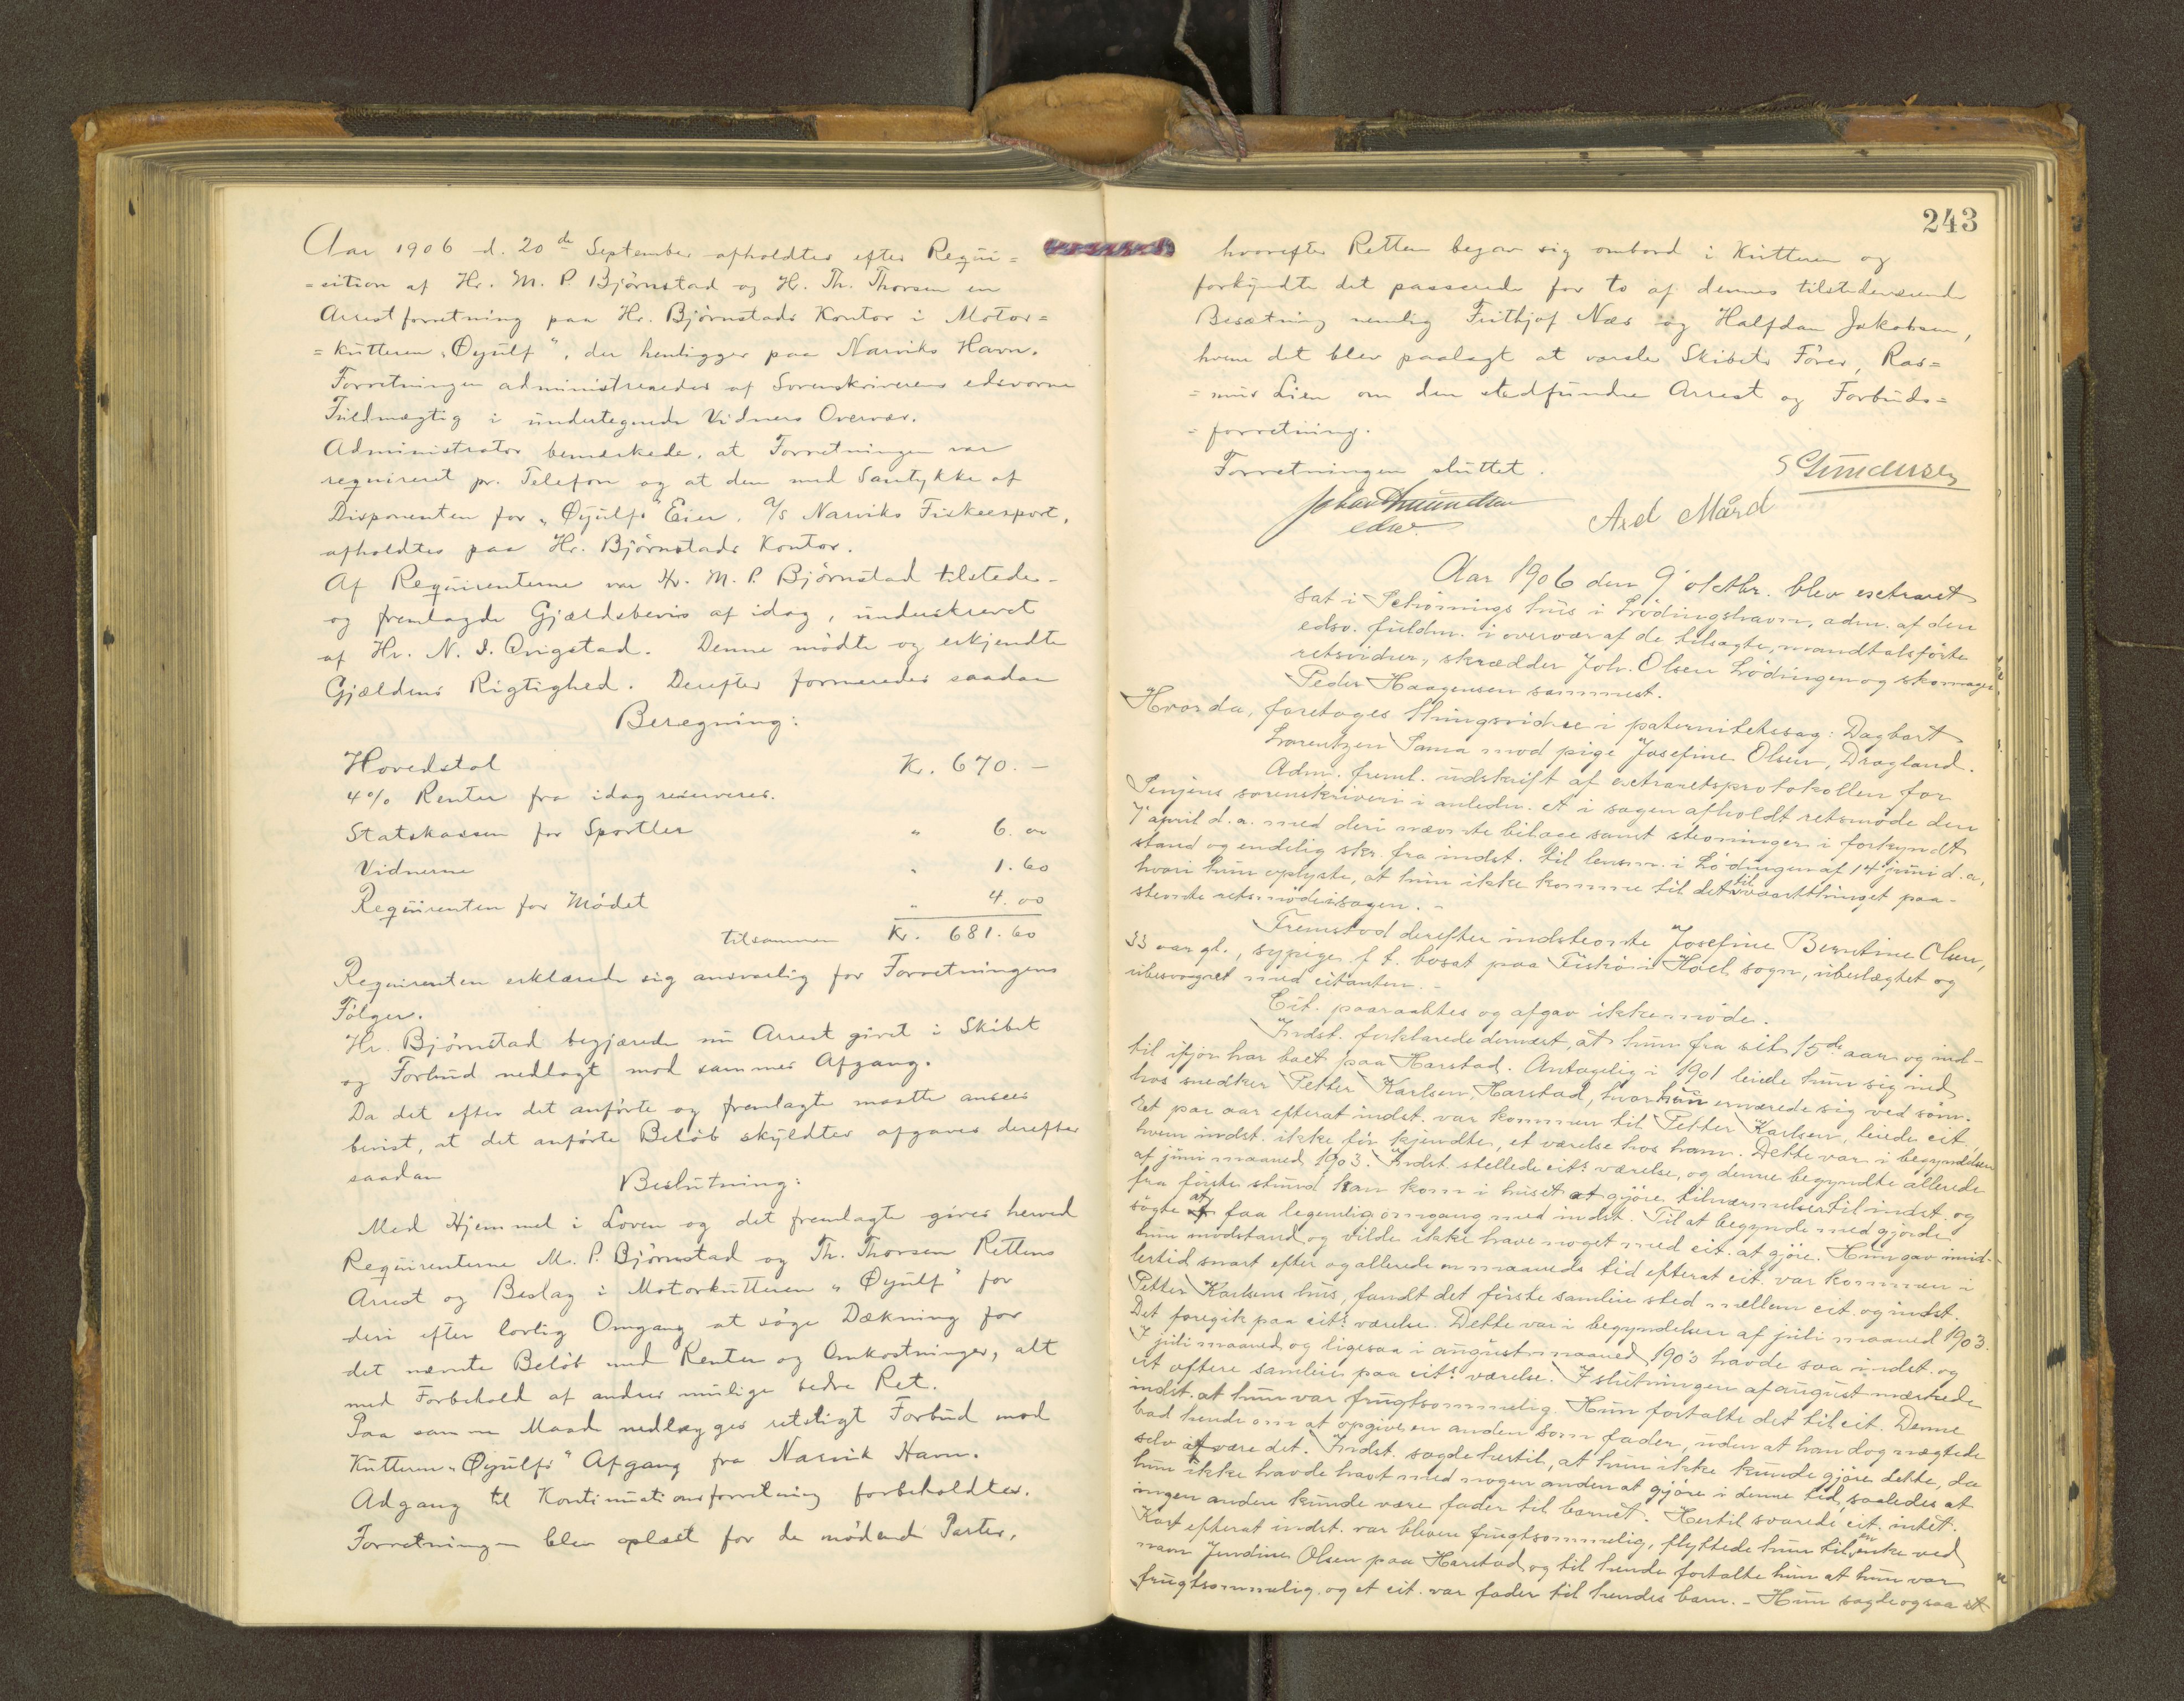 Aar 1906 d. 20de September afholdtes efter Requi=
=sition af Hr. M. P. Björnstad og H. Th. Thorsen en
Arrestforretning paa Hr. Björnstads Kontor i Motor=
=kutteren „Øyulf", der henligger paa Narviks Havn.
Forretningen administreredes af Sorenskriverens edsvorne
Fuldmægtig i undertegnede Vidners Overvær.
Administrator bemærkede, at Forretningen var
requireret pr. Telefon og at den med Samtykke af
Disponenten for „Øyulfs" Eier, A/S Narviks Fiskeexport,
afholdtes paa Hr. Björnstads Kontor.
Af Requirenterne var Hr. M. P. Björnstad tilstede
og fremlagde Gjældsbevis af idag, underskrevet
af Hr. N. I. Qvigstad. Denne mödte og erkjendte
Gjældens Rigtighed. Derefter formeredes saadan
Beregning:
Hovedstol Kr. 670.—
4% Renter fra idag reserveres.
Statskassen for Sportler " 6.00
Vidnerne " 1.60
Requirenten for Mödet " 4.00
tilsammen Kr. 681.60
Requirenten erklærede sig ansvarlig for Forretningens
Fölger.
Hr. Björnstad begjærede nu Arrest givet i Skibet
og Forbud nedlagt mod sammes Afgang.
Da det efter det anförte og fremlagte maatte ansees
bevist, at det anförte Belöb skyldtes afgaves derefter
saadan
Beslutning:
Med Hjemmel i Loven og det fremlagte gives herved
Requirenterne M. P. Björnstad og Th. Thorsen Rettens
Arrest og Beslag i Motorkutteren „Øyulf" for
deri efter lovlig Omgang at söge Dækning for
det nævnte Belöb med Renter og Omkostninger, alt
med Forbehold af andres mulige bedre Ret.
Paa samme Maade nedlægges retsligt Forbud mod
Kutteren „Øyulfs" Afgang fra Narvik Havn.
Adgang til Kontinuationsforretning forbeholdtes.
Forretningen blev oplæst for de mödende Parter,
243
hvorefter Retten begav sig ombord i Kutteren og
forkyndte det passerede for to af dennes tilstedeværende
Besætning nemlig Frithjof Næs og Halfdan Jakobsen,
hvem det blev paalagt at varsle Skibets Förer, Ras=
=mus Lien om den stedfundne Arrest og Forbuds=
=forretning.
Forretningen sluttet.
S Gundersen
Johan Amundsen
edsv.
Axel Mård
Aar 1906 den 9' oktbr. blev extraret
sat i Schönings hus i Lödingshavn, adm. af den
edsv. fuldm. i overvær af de tilsagte, mandtalsförte
retsvidner, skrædder Joh. Olsen Lödingen og skomager
Peder Haagensen sammest.
Hvor da, foretoges thingsvidne i paternitetssag: Dagbart
Lorentzen Sama mod pige Josefine Olsen, Dragland.
Adm. freml. udskrift af extraretsprotokollen for
Senjens sorenskriveri i anledn. et i sagen afholdt retsmöde den
7' april d.a. med deri nævnte bilage samt stevningen i forkyndt
stand og endelig skr. fra indst. til lensm. i Lödingen af 14' juni d.a,
hvori hun oplyste, at hun ikke kommer til det til vaartthinget paa-
stevnte retsmöde i sagen. -
Fremstod derefter indstevnte Josefine Berntine Olsen,
33 aar gl., sypige f. t. bosat paa Fiskö i Hoel sogn, ubeslægtet og
ubesvogret med citanten. -
Cit. paaraabtes og afgav ikke möde.
Indst. forklarede dernæst, at hun fra sit 15de aar og ind-
til ifjor har boet paa Harstad. Antagelig i 1901 leiede hun sig ind
hos snedker Petter Karlsen, Harstad, hvor hun ernærede sig ved söm.
Et par aar efterat indst. var kommen til Petter Karlsen, leiede cit.,
hvem indst. ikke för kjendte, et værelse hos ham. Dette var i begyndelsen
af juni maaned 1903. Indst. stellede cit.s værelse, og denne begyndte allerede
fra förste stund han kom i huset at gjöre tilnærmelser til indst. og
sögte at faa legemlig omgang med indst. Til at begynde med gjorde
hun modstand og vilde ikke have noget med cit. at gjöre. Hun gav imid-
lertid snart efter og allerede en maaneds tid efterat cit. var kommen i
Petter Karlsens hus, fandt det förste samleie sted mellem cit. og indst.
Det foregik paa cit.s værelse. Dette var i begyndelsen af juli maaned 1903.
I juli maaned og ligesaa i august maaned 1903 havde saa indst. og
cit oftere samleie paa cit.s værelse. I slutningen af august mærkede
indst. at hun var frugtsommelig. Hun fortalte det til cit. Denne
bad hende om at opgive en anden som fader, uden at han dog nægtede
selv at være det. Indst. sagde hertil, at hun ikke kunde gjöre dette, da
hun ikke havde havt med nogen anden at gjöre i denne tid, saaledes at
ingen anden kunde være fader til barnet. Hertil svarede cit. intet.
Kort efterat indst. var bleven frugtsommelig, flyttede hun til en enke ved
navn Jendine Olsen paa Harstad og til hende fortalte hun at hun var
frugtsommelig og at cit. var fader til hendes barn. - Hun sagde ogsaa at